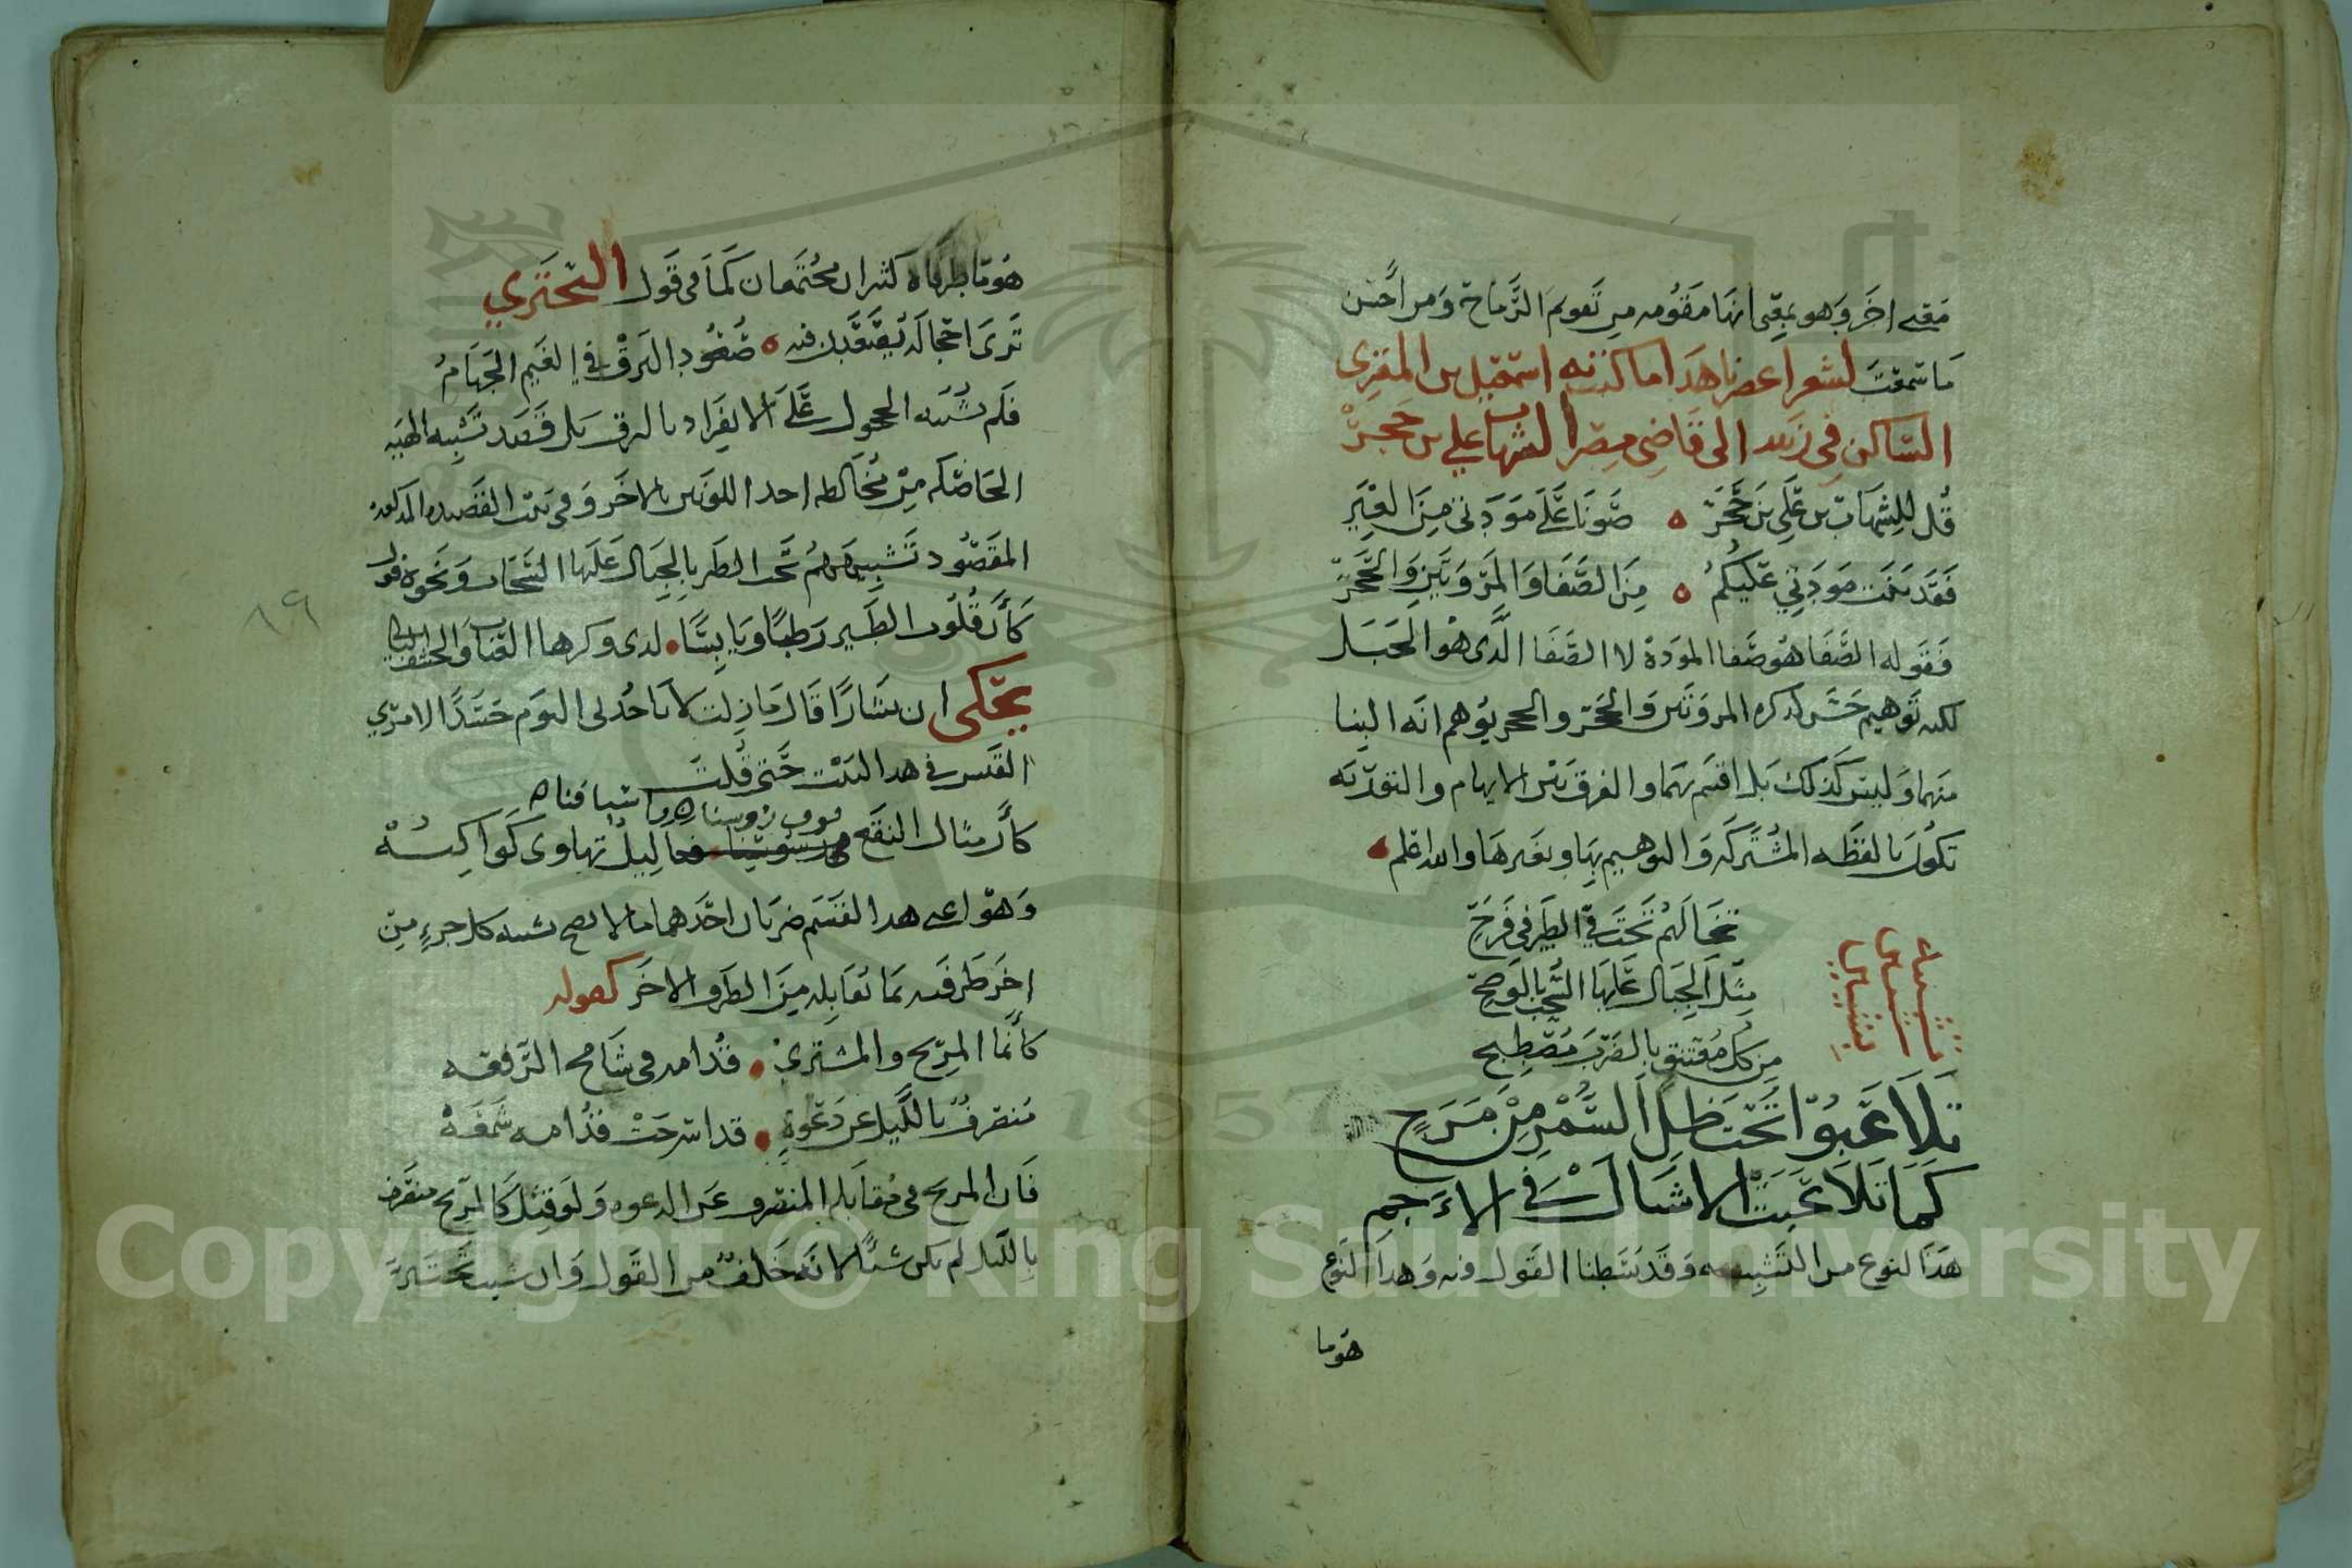 معنى اخر وهو بمعنى انها مقومه من تقويم الرماح ومن احسن
ما سمعت لشعرا عصرنا هذا ما كتبه اسمعيل بن المقري
الساكن في زبيد الى قاضي مصر الشهاب علي بن حجر
قل للشهاب بن علي بن حجر ه صونا على مودتي من الغير
فقد بنت مودتي عليكم ه من الصفا والمروتين والحجر
فقوله الصفا هو صفا المودة لا الصفا الذى هو الجبل
لكنه توهيم حسن لذكره المروتين والحجر والحجر يوهم انه البنا
منهما وليس كذلك بل اقسم بهما والفرق بين الايهام والتوريه
تكون بالفظه المشتركه والتوهيم بها وبغيرها والله اعلم ه
تخالهم تحت في الطير في فرح
مثل الجبال عليها السحب بالوضح
من كل مغتبق بالضرب مصطبح
تشبيه
شيئين
بشيئين
تلاعبوا تحت ظل السمر من مرح
كما تلاعبت الاشبال في الاجم
هذا النوع من التشبيه وقد بسطنا القول فيه وهذا النوع
هو ما
هو ما طرفاه كثيران مجتمعان كما في قول البحتري
ترى احجاله يصعدن فيه ه صعود البرق في الغيم الجهام
فلم يشبه الحجول على الانفراد بالبرق بل قصد تشبيه الهيه
الحاصله من مخالطه احد اللونين بالاخر وفي بيت القصيده المذكور
المقصود تشبيههم تحت الطير بالجبال عليها السحاب ونحوه قول
كأن قلوب الطير رطبا ويابسا ه لدى وكرها العناب والحشف البالي
يحكى ان بشارا قال ما زلت لا ياخذني النوم حسدا لامري
القيس في هذا البيت حتى قلت
فوق رؤوسنا ه واسيافنا ه
كأن مثار النقع ليل تهاوى كواكبه
وهو اعني هذا القسم ضربان احدهما ما لا يصح تشبيه كل جزء من
اخر طرفيه بما تقابله من الطرف الاخر كقوله
كأنما المريخ والمشتري ه قدامه في شامخ الرفعه
منصرف بالليل عن دعوة ه قد اسرجت قدامه شمعه
فان المريخ في مقابله المنصرف عن الدعوه ولو قيل كالمريخ منصرف
بالليل لم يكن شيئا لانه خلف من القول وان شيت
٨٩
Copyright © King Saud University
1957